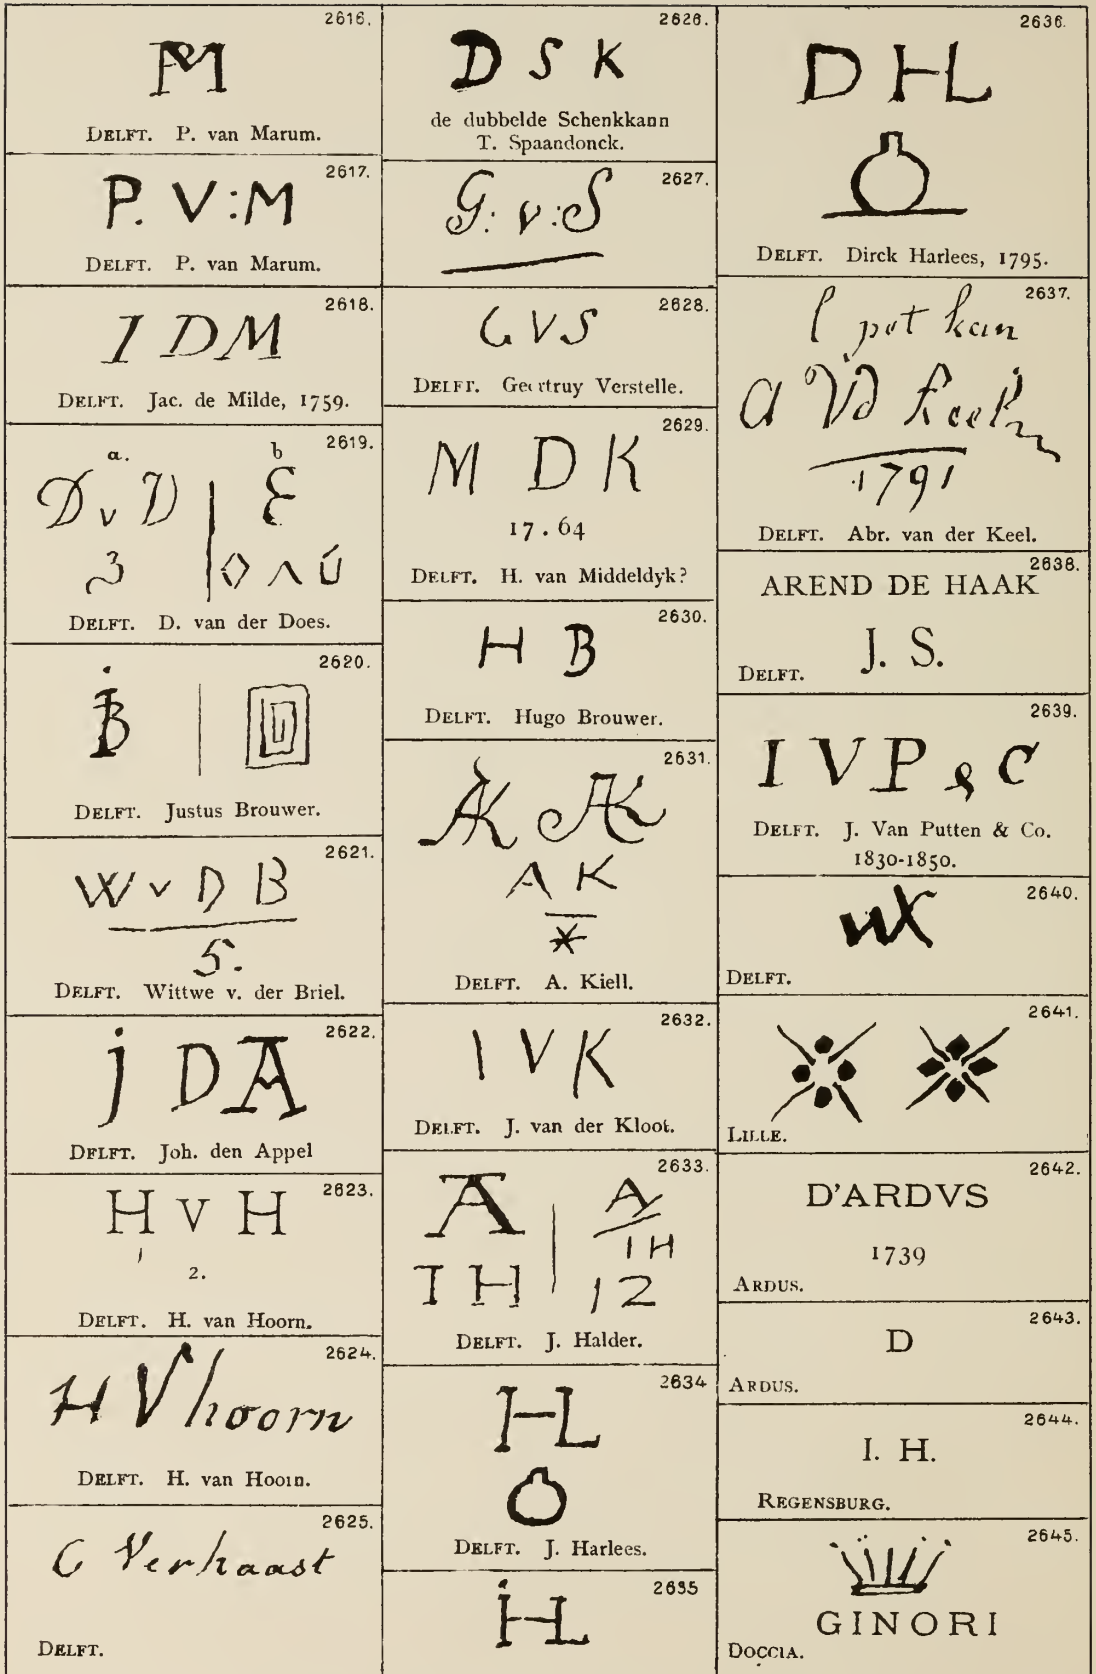 2616.
PM
DELFT. P. van Marum.
2617.
P. V:M
DELFT. P. van Marum.
2618.
I DM
DELFT. Jac. de Milde, 1759.
2619.
a. b
D v D
3
DELFT. D. van der Does.
2620.
iB
DELFT. Justus Brouwer.
2621.
W v D B
5.
DELFT. Wittwe v. der Briel.
2622.
j D A
DELFT. Joh. den Appel
2623.
H v H
1
2.
DELFT. H. van Hoorn.
2624.
H V hoorn
DELFT. H. van Hoorn.
2625.
C Verhaast
DELFT.
2626.
D S K
de dubbelde Schenkkann
T. Spaandonck.
2627.
G: v: S
2628.
G V S
DELFT. Geertruy Verstelle.
2629.
M D K
17.64
DELFT. H. van Middeldyk?
2630.
H B
DELFT. Hugo Brouwer.
2631.
AK AK
A K
*
DELFT. A. Kiell.
2632.
I V K
DELFT. J. van der Kloot.
2633.
A
I H
A
I H
12
DELFT. J. Halder.
2634
HL
DELFT. J. Harlees.
2635
HL
2636.
D HL
DELFT. Dirck Harlees, 1795.
2637.
l pet kan
A Vd Keel
1791
DELFT. Abr. van der Keel.
2638.
AREND DE HAAK
J. S.
DELFT.
2639.
I V P & C
DELFT. J. Van Putten & Co.
1830-1850.
2640.
DELFT.
2641.
LILLE.
2642.
D'ARDVS
1739
ARDUS.
2643.
D
ARDUS.
2644.
I. H.
REGENSBURG.
2645.
GINORI
DOCCIA.